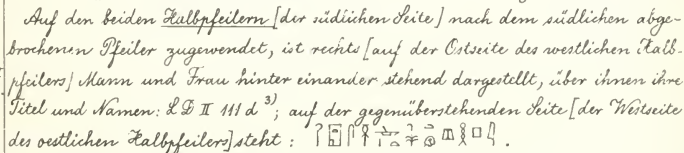 Auf den beiden Halbpfeilern [der südlichen Seite] nach dem südlichen abge-
brochenen Pfeiler zugewendet, ist rechts [auf der Ostseite des westlichen Halb-
pfeilers] Mann und Frau hinter einander stehend dargestellt, über ihnen ihre
Titel und Namen: LD II 111 d 3); auf der gegenüberstehenden Seite [der Westseite
des oestlichen Halbpfeilers] steht :